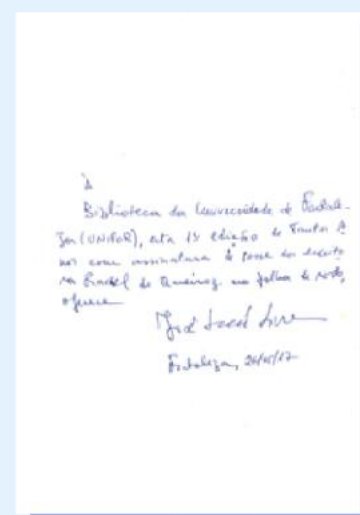 À
Biblioteca da Universidade de Fortale-
za (UNIFOR), esta 1ª edição de
nos com assinatura de posse da escrito
ra Rachel de Queiroz na folha de rosto,
oferece
José
Fortaleza,